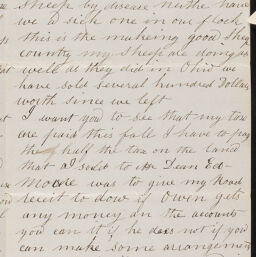 sheep by disease neither have
we a sick one in our flock
this is the makeing good sheep
country my sheep are doing as
well as they did in Ohio we
have sold several hundred Dollars
worth since we left
I want you to see that my tax
are paid this fall I have to pay
the half the tax on the land
that I sold to Dean Ed
Moode was to give my Road
receit to dow if Owen gets
any money on the accounts
you can it if he does not if you
can make some arrangements